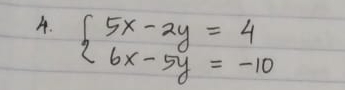 4. { 5x - 2y = 4
6x - 5y = -10